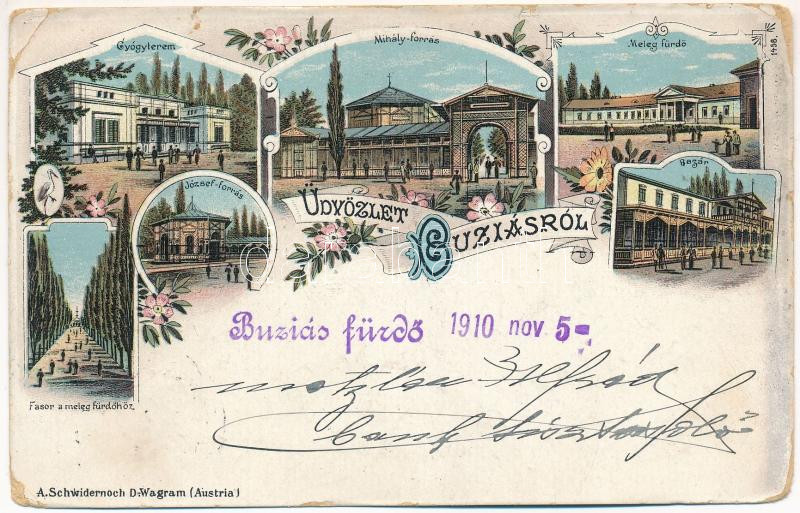 Gyógyterem
Mihály-forrás
Meleg fürdő
1498.
József-forrás
Bazár
ÜDVÖZLET
BUZIÁSRÓL
Buziás fürdő 1910 nov 5
Fasor a meleg fürdőhöz.
Alfréd
bank
A. Schwidernoch D.-Wagram (Austria)